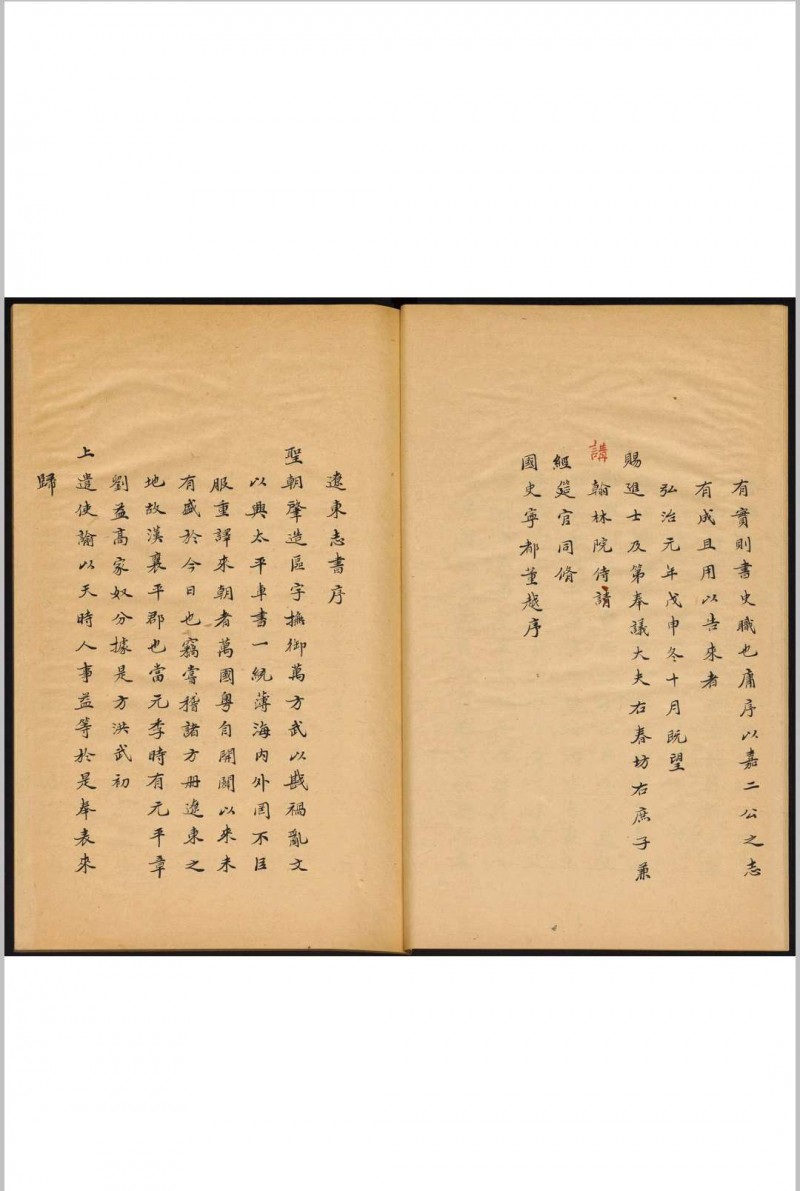 有實則書史職也庸序以嘉二公之志
有成且用以告來者
弘治元年戊申冬十月既望
賜進士及第奉議大夫右春坊右庶子兼
講
翰林院侍請
經筵官同脩
國史寧都董越序
遼東志書序
聖朝肇造區宇撫御萬方武以戡禍亂文
以興太平車書一統薄海內外罔不臣
服重譯來朝者萬國粵自開闢以來未
有盛於今日也竊嘗稽諸方冊遼東之
地故漢襄平郡也當元季時有元平章
劉益高家奴分據是方洪武初
上遣使諭以天時人事益等於是奉表來
歸